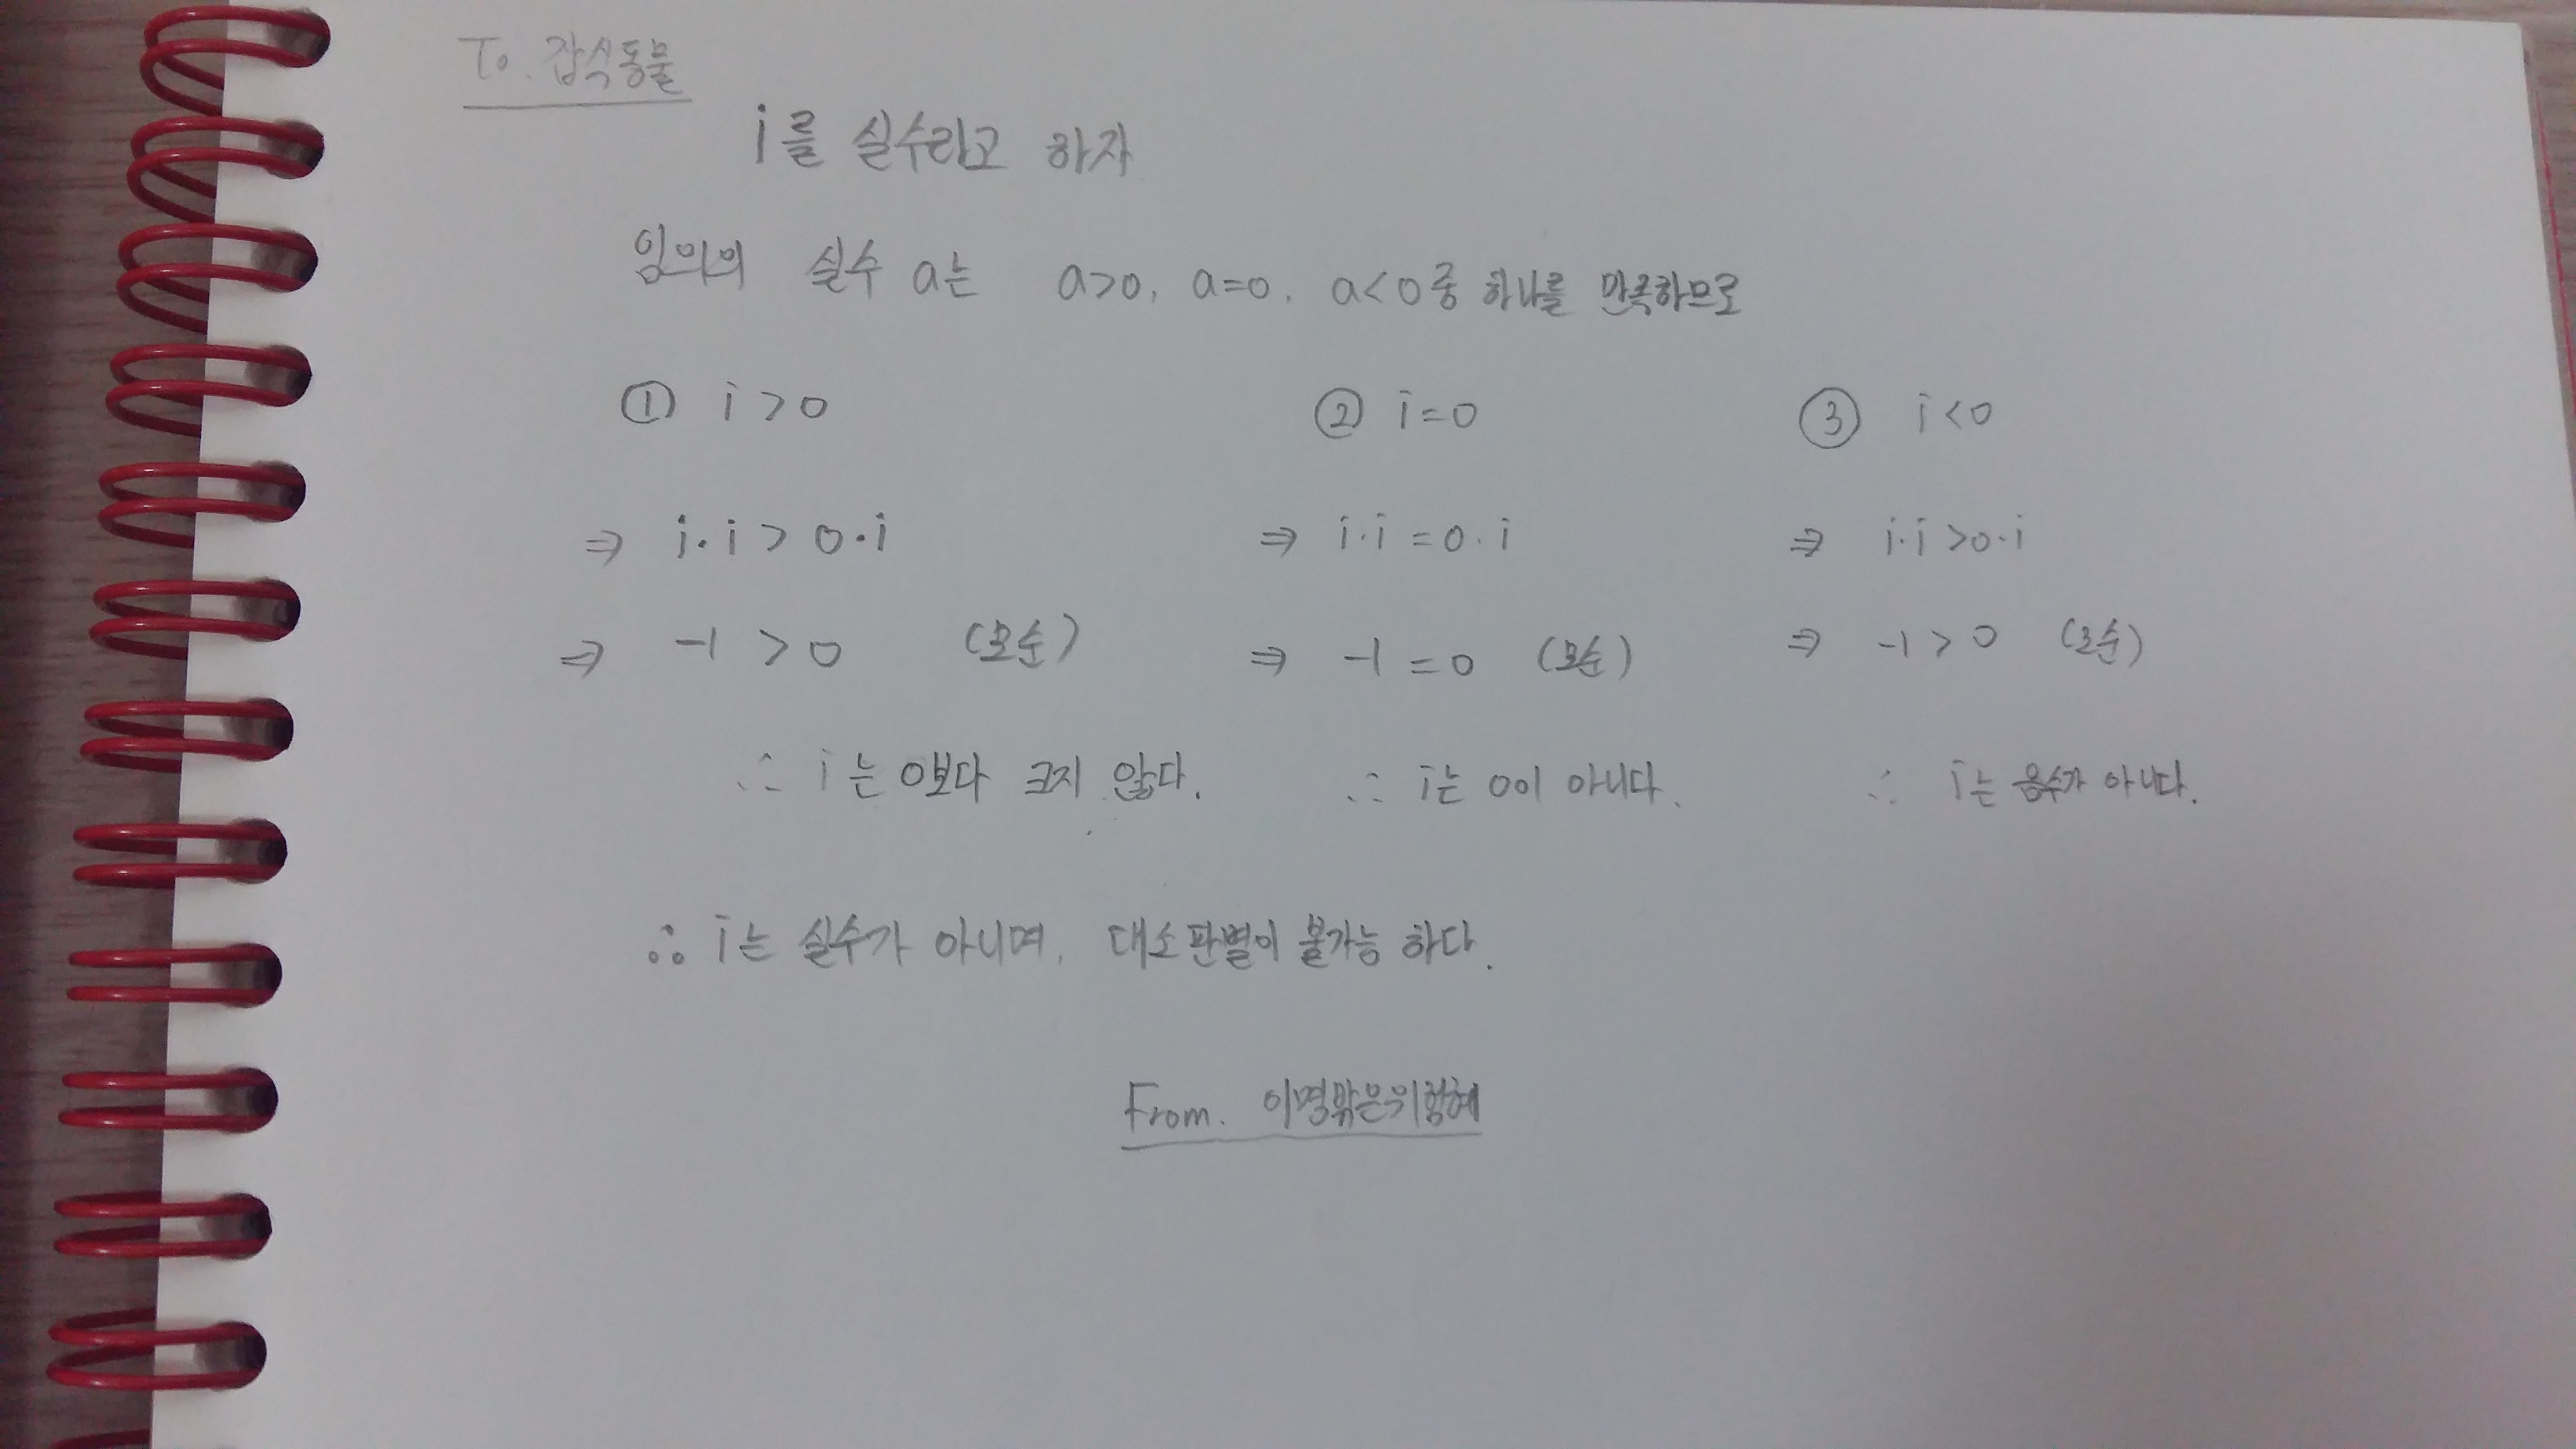 To. 잡식동물
i를 실수라고 하자
임의의 실수 a는 a>0, a=0, a<0중 하나를 만족하므로
① i>0 ② i=0 ③ i<0
⇒ i·i>0·i ⇒ i·i=0·i ⇒ i·i>0·i
⇒ -1>0 (모순) ⇒ -1=0 (모순) ⇒ -1>0 (모순)
∴ i는 0보다 크지 않다. ∴ i는 0이 아니다. ∴ i는 음수가 아니다.
∴ i는 실수가 아니며, 대소판별이 불가능 하다.
From.